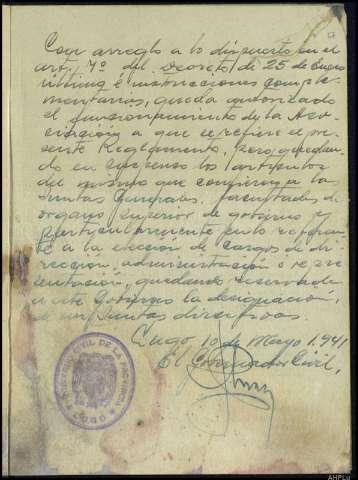 Con arreglo a lo dispuesto en el
art. 7º del Decreto de 25 de Enero
último é instrucciones comple-
mentarias, queda autorizado
el funcionamiento de la Aso-
ciación a que se refiere el pre-
sente Reglamento, pero quedan-
do en suspenso los artículos
del mismo que confieren a las
Juntas Generales facultades de
órgano superior de gobierno y
particularmente en lo referen-
te a la elección de cargos de di-
rección, administración ó repre-
sentación, quedando reservada
a este Gobierno la designación
de sus Juntas directivas.
Lugo 10 de Mayo 1.941
El Gobernador Civil,
GOBIERNO CIVIL DE LA PROVINCIA
LUGO
AHPLu